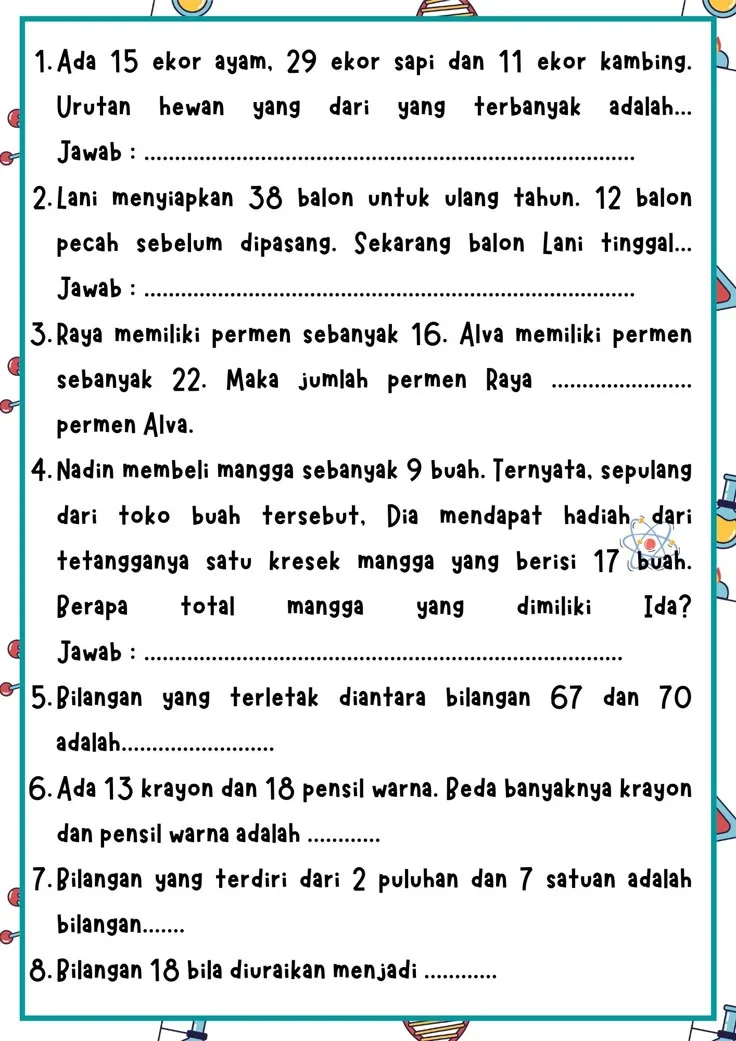 1. Ada 15 ekor ayam, 29 ekor sapi dan 11 ekor kambing.
Urutan hewan yang dari yang terbanyak adalah...
Jawab : ................................................................................
2. Lani menyiapkan 38 balon untuk ulang tahun. 12 balon
pecah sebelum dipasang. Sekarang balon Lani tinggal...
Jawab : ................................................................................
3. Raya memiliki permen sebanyak 16. Alva memiliki permen
sebanyak 22. Maka jumlah permen Raya .......................
permen Alva.
4. Nadin membeli mangga sebanyak 9 buah. Ternyata, sepulang
dari toko buah tersebut, Dia mendapat hadiah dari
tetangganya satu kresek mangga yang berisi 17 buah.
Berapa total mangga yang dimiliki Ida?
Jawab : ..............................................................................
5. Bilangan yang terletak diantara bilangan 67 dan 70
adalah.........................
6. Ada 13 krayon dan 18 pensil warna. Beda banyaknya krayon
dan pensil warna adalah ............
7. Bilangan yang terdiri dari 2 puluhan dan 7 satuan adalah
bilangan.......
8. Bilangan 18 bila diuraikan menjadi ............